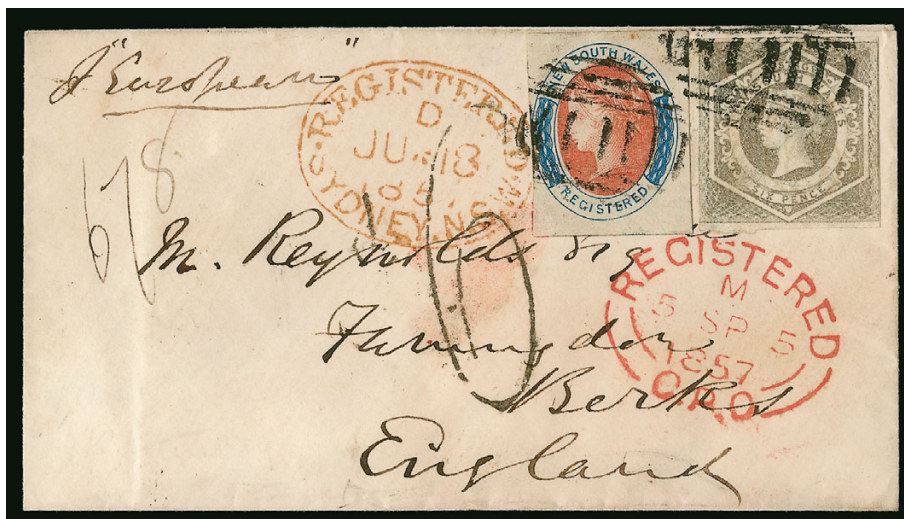 "European"
REGISTERED
D
JU 18
185
SYDNEY.N.S.W.
NEW SOUTH WALES
REGISTERED
SIX PENCE
678
M. Reynolds Esqre
Farringdon
Berks
England
REGISTERED
M
5 SP 5
1857
G.P.O